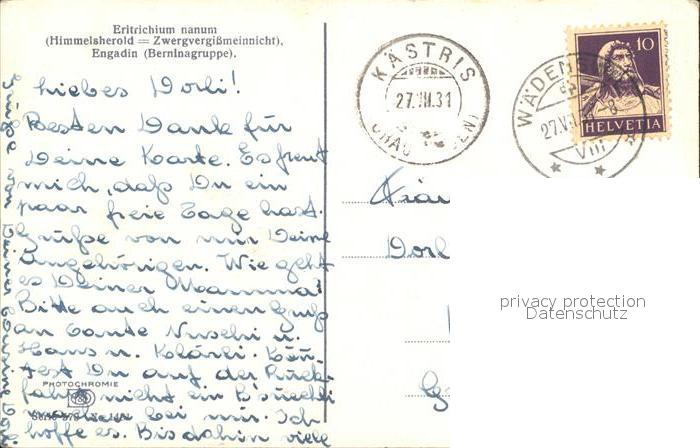 Eritrichium nanum
(Himmelsherold = Zwergvergißmeinnicht),
Engadin (Berninagruppe).
Liebes Dorli!
Besten Dank für
Deine Karte. Es freut
mich, daß Du ein
paar freie Tage hast.
Grüße von mir Deine
Angehörigen. Wie geht
es Deiner Mamma?
Bitte auch einen Gruß
an Tante Nuschi u.
Hans u. Klärli. Könn-
test Du auf der Rück-
fahrt nicht ein Bsüechli
machen bei mir. Ich
hoffe es. Bis dahin viele
Grüße von Deiner Cousine
PHOTOCHROMIE
Serie
KÄSTRIS
27.VII.31
WÄDENSWIL
27.VII.31 - 8
VIII
10
HELVETIA
Dorl
privacy protection
Datenschutz